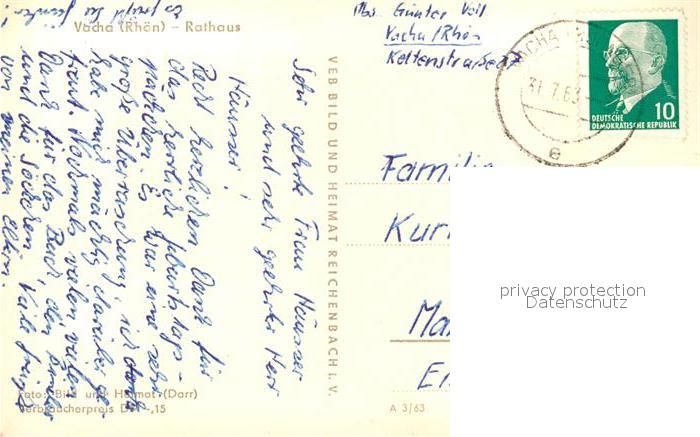 Vacha (Rhön) - Rathaus
Abs. Günter Veil
Vacha/Rhön
Kettenstraße 27
VACHA
31.7.63
e
DEUTSCHE
DEMOKRATISCHE REPUBLIK
10
Sehr geehrte Frau Häusser
und sehr geehrter Herr
Häusser!
Recht herzlichen Dank für
das herrliche Geburtstags-
päckchen. Es war eine sehr
große Überraschung, ich
habe mich mächtig darüber ge-
freut. Nochmals vielen vielen
Dank für das Buch, den
und die Socken. Viele Grüße
von meinen Eltern.
Es grüßt Sie Günter!
VEB BILD UND HEIMAT REICHENBACH i. V.
Familie
Kur
Ma
Foto: Bild und Heimat (Darr)
Verbraucherpreis DM -,15
A 3/63
privacy protection
Datenschutz